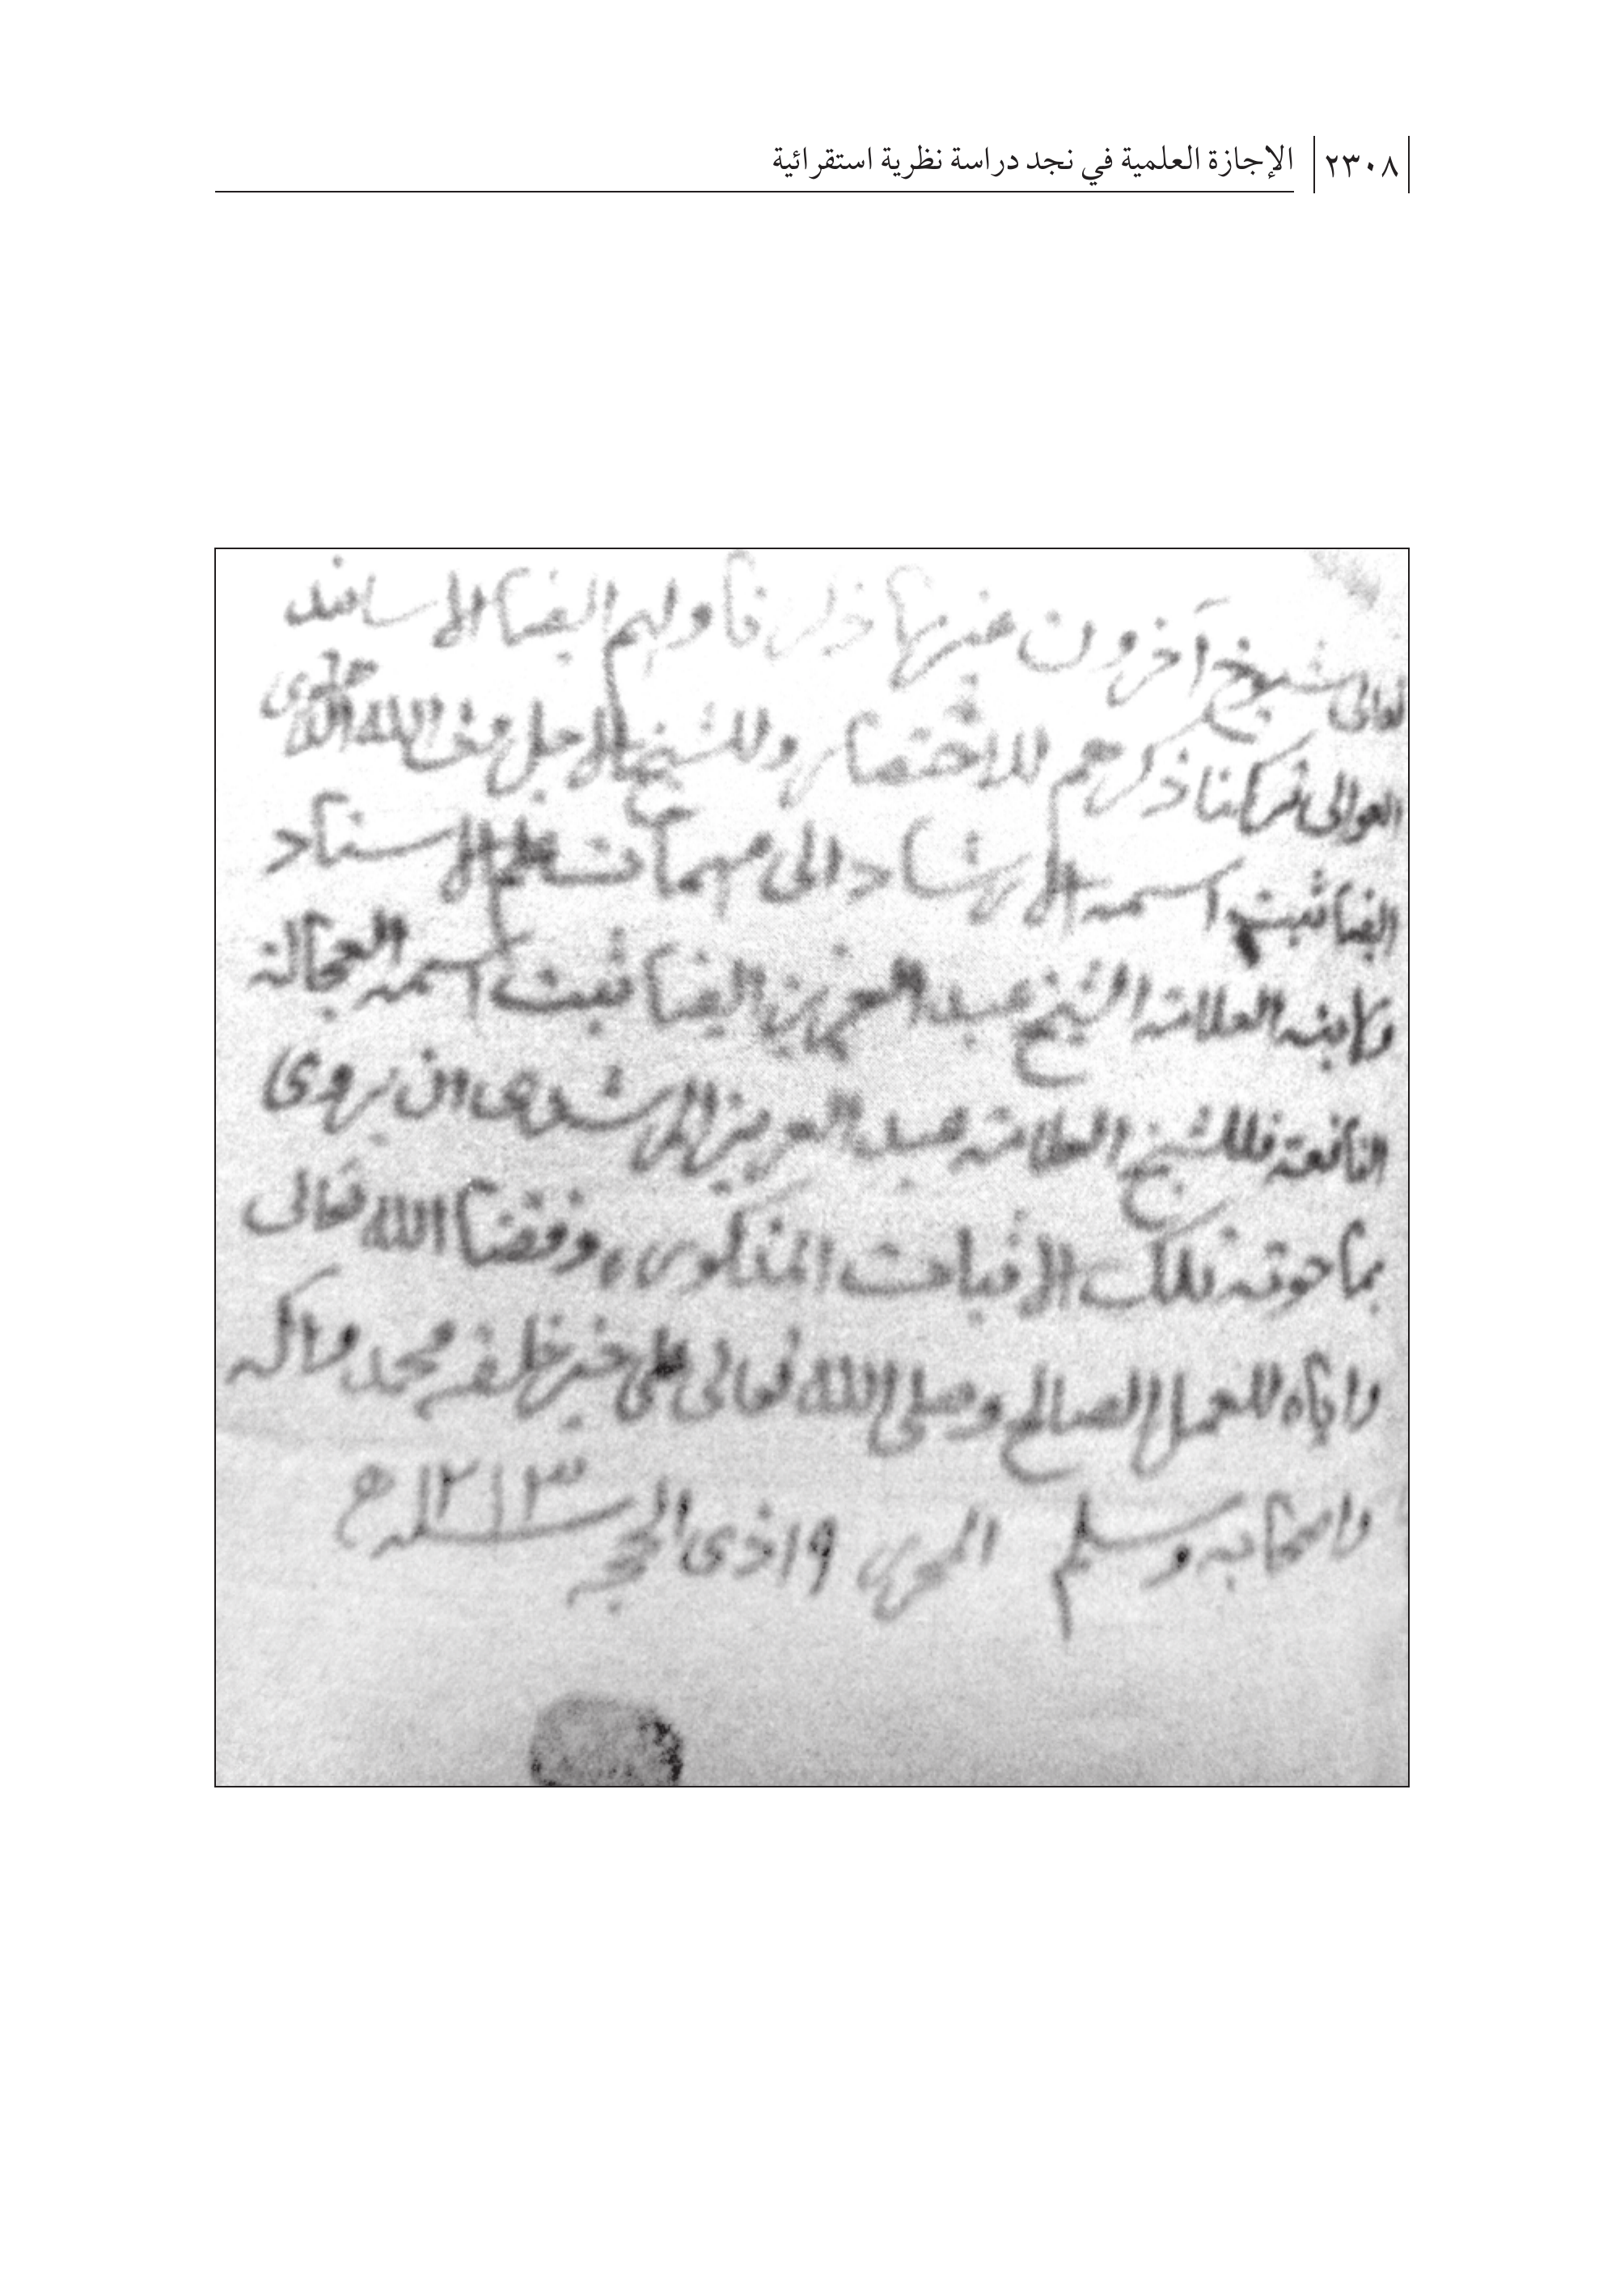 ٢٣٠٨ الإجازة العلمية في نجد دراسة نظرية استقرائية
تعالى شيوخ آخرون غير ما ذكرنا ولهم ايضا الاسانيد
العوالى تركنا ذكرهم للاختصار وللشيخ الاجل ولى الله الدهلوى
ايضا ثبت اسمه الارشاد الى مهمات علم الاسناد
ولابنه العلامة الشيخ عبد العزيز ايضا ثبت اسمه العجالة
النافعة فللشيخ العلامة عبد العزيز ان يروى
بما حوته تلك الاثبات المذكورة وفقنا الله تعالى
واياه للعمل الصالح وصلى الله تعالى على خير خلقه محمد وآله
واصحابه وسلم المحرر ١٩ ذى الحجه سنة ھ